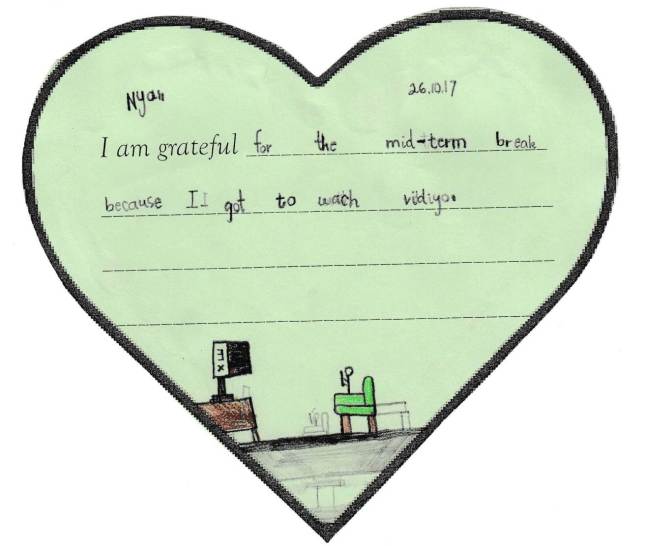 Nyah 26.10.17
I am grateful for the mid-term break
because II got to wach vidiyo.